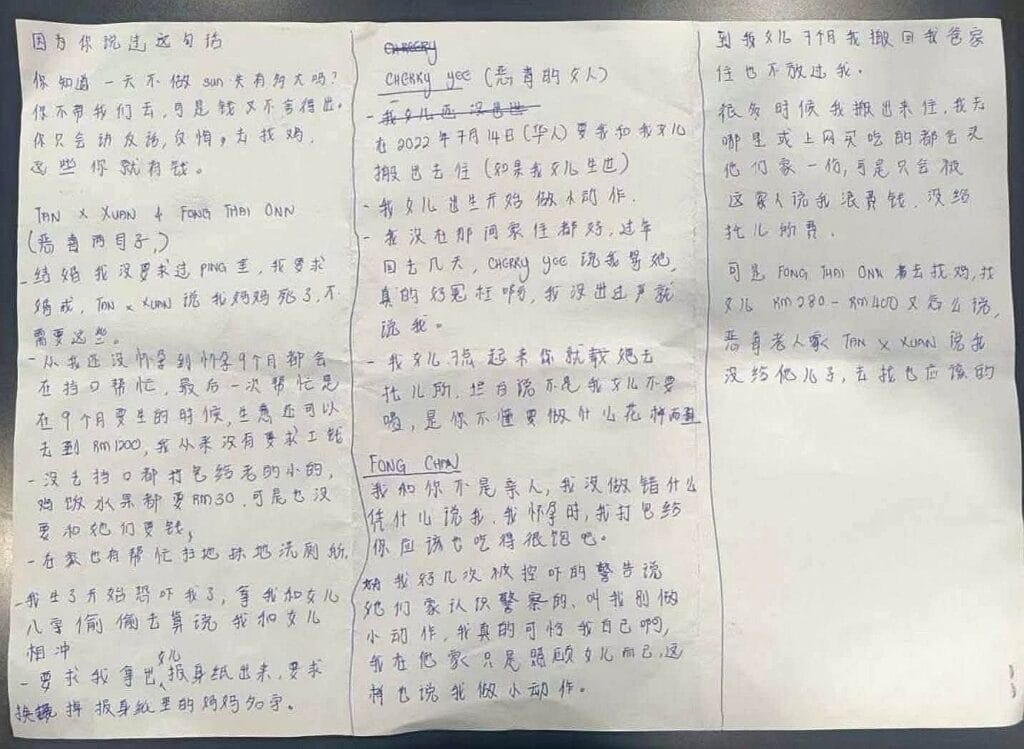 因为你说过这句话
你知道一天不做 sun 失有多大吗?
你不带我们去,可是钱又不舍得出。
你只会动及话,反悔。去找鸡,
这些你就有钱。
TAN x XUAN & FONG THAI ONN
(恶毒两母子,)
- 结婚我没要求过 PING 金,我要求
婚戒,TAN x XUAN 说我妈妈死了,不
需要这些。
- 从我还没怀孕到怀孕9个月都会
在挡口帮忙,最后一次帮忙是
在9个月要生的时候,生意还可以
去到 RM1200,我从来没有要求工钱
- 没去挡口都打包给老的小的,
鸡饭水果都要 RM30,可是也没
要和她们要钱,
- 在家也有帮忙扫地抹地洗厕所
- 我生了开始恐吓我了,拿我和女儿
八字偷偷去算说我和女儿
相冲
- 要求我拿出女儿报身纸出来,要求
换掉报身纸里的妈妈名字。
CHERRY
CHERRY YEE (恶毒的女人)
- 我女儿还没出世
在2022年7月14日(华人)要我和我女儿
搬出去住(如果我女儿生也)
- 我女儿出生开始做小动作.
- 我没在那间家住都好,过年
回去几天,CHERRY YEE 说我骂她,
真的好冤枉啊,我没出过声就
说我。
- 我女儿3点起来你就教绝去
托儿所,坦白说不是我女儿不要
喝,是你不懂要做什么花样而已
FONG CHAN
我和你不是亲人,我没做错什么
凭什儿说我,我怀孕时,我打包给
你应该也吃得很饱吧。
我好几次被控吓的警告说
她们家认识警察的、叫我别做
小动作,我真的可怜我自己啊,
我在他家只是照顾女儿而已,这
样也说我做小动作。
到我女儿7个月我搬回我爸家
住也不放过我。
很多时候我搬出来住,我去
哪里或上网买吃的都会买
他们家一份,可是只会被
这家人说我浪费钱,没给
托儿所费.
可是 FONG THAI ONN 去找鸡,找
女儿 RM280 - RM400 又怎么说,
恶毒老人家 TAN x XUAN 说我
没给他儿子,去找也应该的